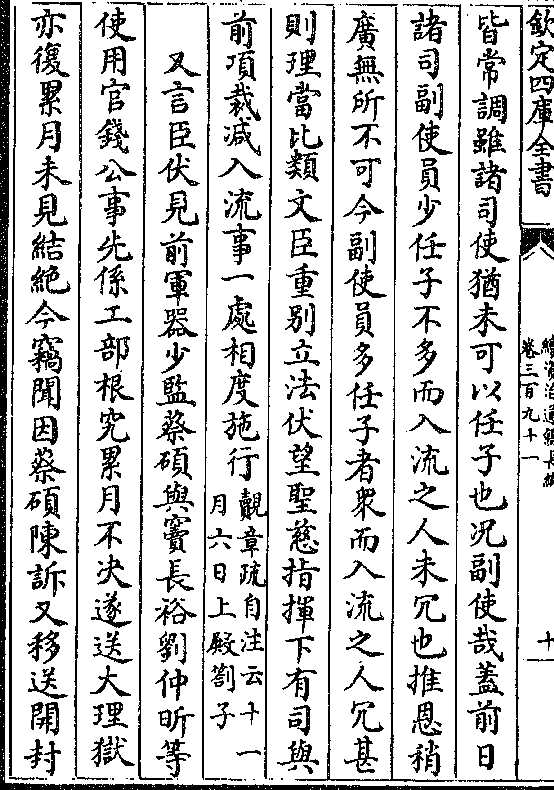 欽定四庫全書
續資治通鑑長編
卷三百九十一
十
皆常調雖諸司使猶未可以任子也况副使哉蓋前日
諸司副使員少任子不多而入流之人未冗也推恩稍
廣無所不可今副使員多任子者衆而入流之人冗甚
則理當比類文臣重别立法伏望聖慈指揮下有司與
前項裁减入流事一處相度施行
覿章疏自注云十一
月六日上殿劄子
又言臣伏見前軍器少監蔡碩與竇長裕劉仲昕等
使用官錢公事先係工部根究累月不决遂送大理獄
亦復累月未見結絶今竊聞因蔡碩陳訴又移送開封